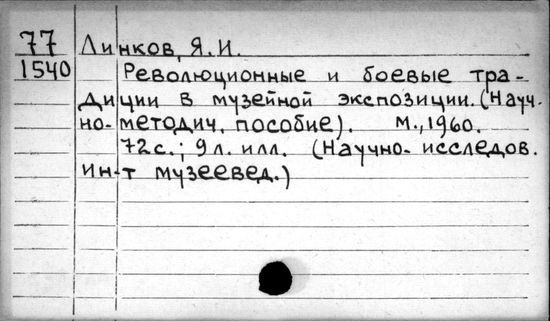 77 Линков, Я.И.
1540 Революционные и боевые тра-
диции в музейной экспозиции. (Науч-
но-методич. пособие). М., 1960.
72с.; 9 л. илл. (Научно-исследов.
ин-т музеевед.)